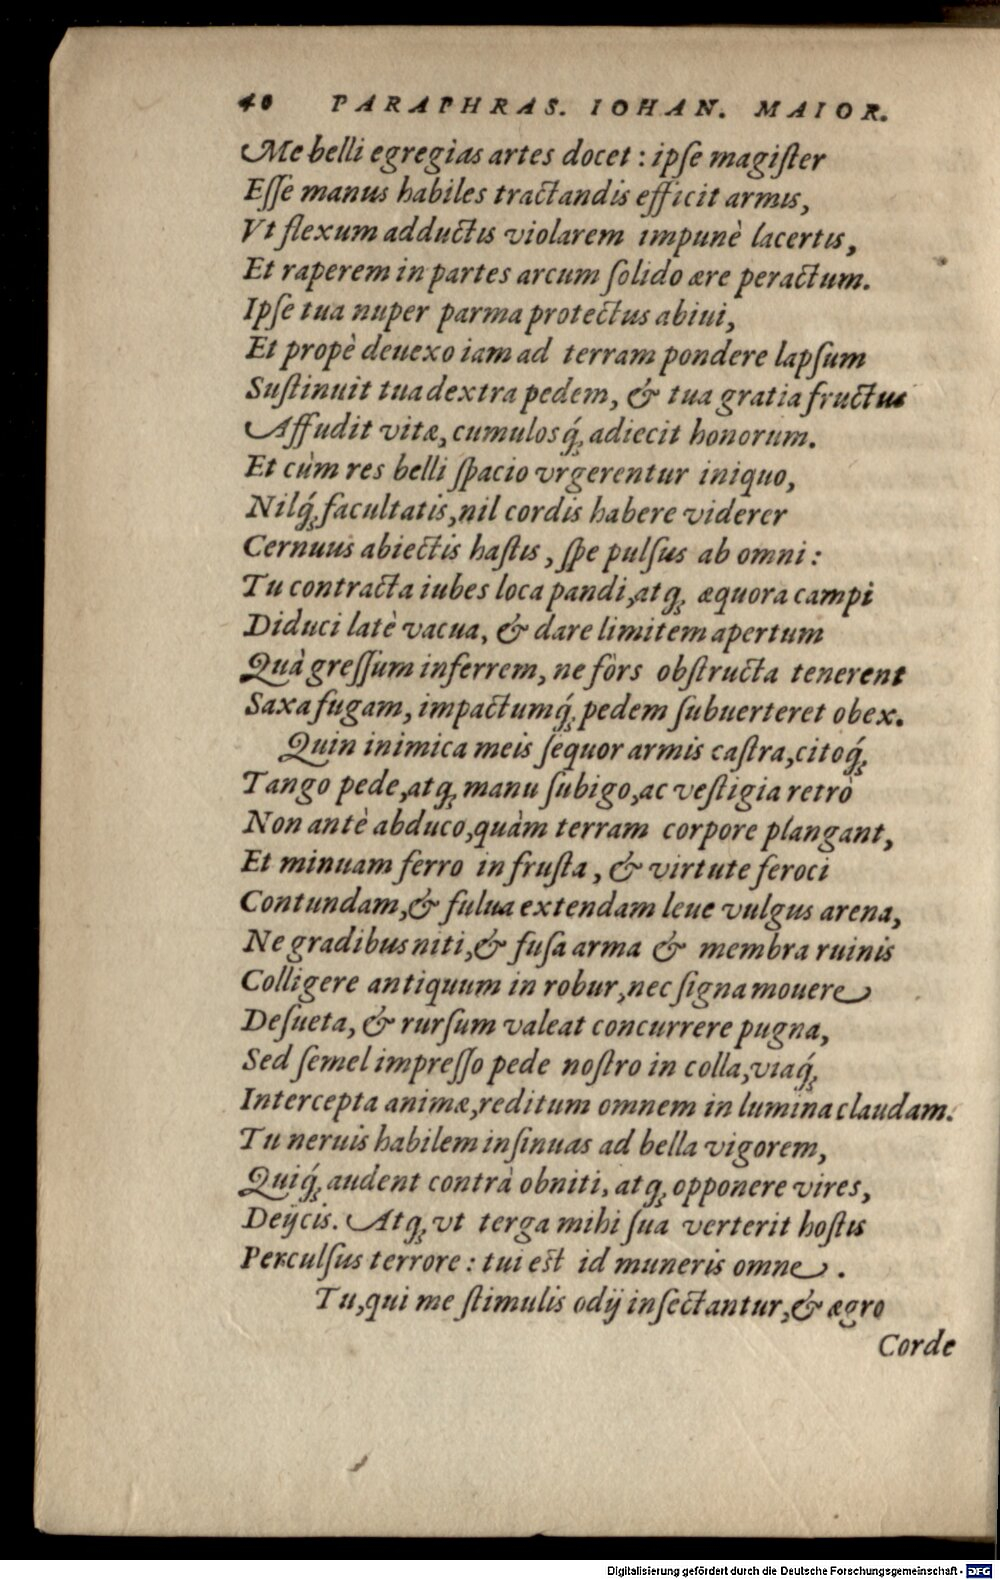 40 PARAPHRAS. IOHAN. MAIOR.
Me belli egregias artes docet : ipſe magiſter
Eſſe manus habiles tractandis efficit armis,
Vt flexum adductis violarem impunè lacertis,
Et raperem in partes arcum ſolido ære peractum.
Ipſe tua nuper parma protectus abiui,
Et propè deuexo iam ad terram pondere lapſum
Suſtinuit tua dextra pedem, & tua gratia fructus
Affudit vitæ, cumulosq́; adiecit honorum.
Et cùm res belli ſpacio vrgerentur iniquo,
Nilq́; facultatis, nil cordis habere viderer
Cernuus abiectis haſtis, ſpe pulſus ab omni :
Tu contracta iubes loca pandi, atq; æquora campi
Diduci latè vacua, & dare limitem apertum
Quà greſſum inferrem, ne fòrs obſtructa tenerent
Saxa fugam, impactumq́; pedem ſubuerteret obex.
Quin inimica meis ſequor armis caſtra, citoq́;
Tango pede, atq; manu ſubigo, ac veſtigia retrò
Non antè abduco, quàm terram corpore plangant,
Et minuam ferro in fruſta, & virtute feroci
Contundam, & fulua extendam leue vulgus arena,
Ne gradibus niti, & fuſa arma & membra ruinis
Colligere antiquum in robur, nec ſigna mouere
Deſueta, & rurſum valeat concurrere pugna,
Sed ſemel impreſſo pede noſtro in colla, viaq́;
Intercepta animæ, reditum omnem in lumina claudam.
Tu neruis habilem inſinuas ad bella vigorem,
Quiq́; audent contrà obniti, atq; opponere vires,
Deijcis. Atq; vt terga mihi ſua verterit hoſtis
Perculſus terrore : tui est id muneris omne .
Tu, qui me ſtimulis odij inſectantur, & ægro
Corde
Digitalisierung gefördert durch die Deutsche Forschungsgemeinschaft - DFG